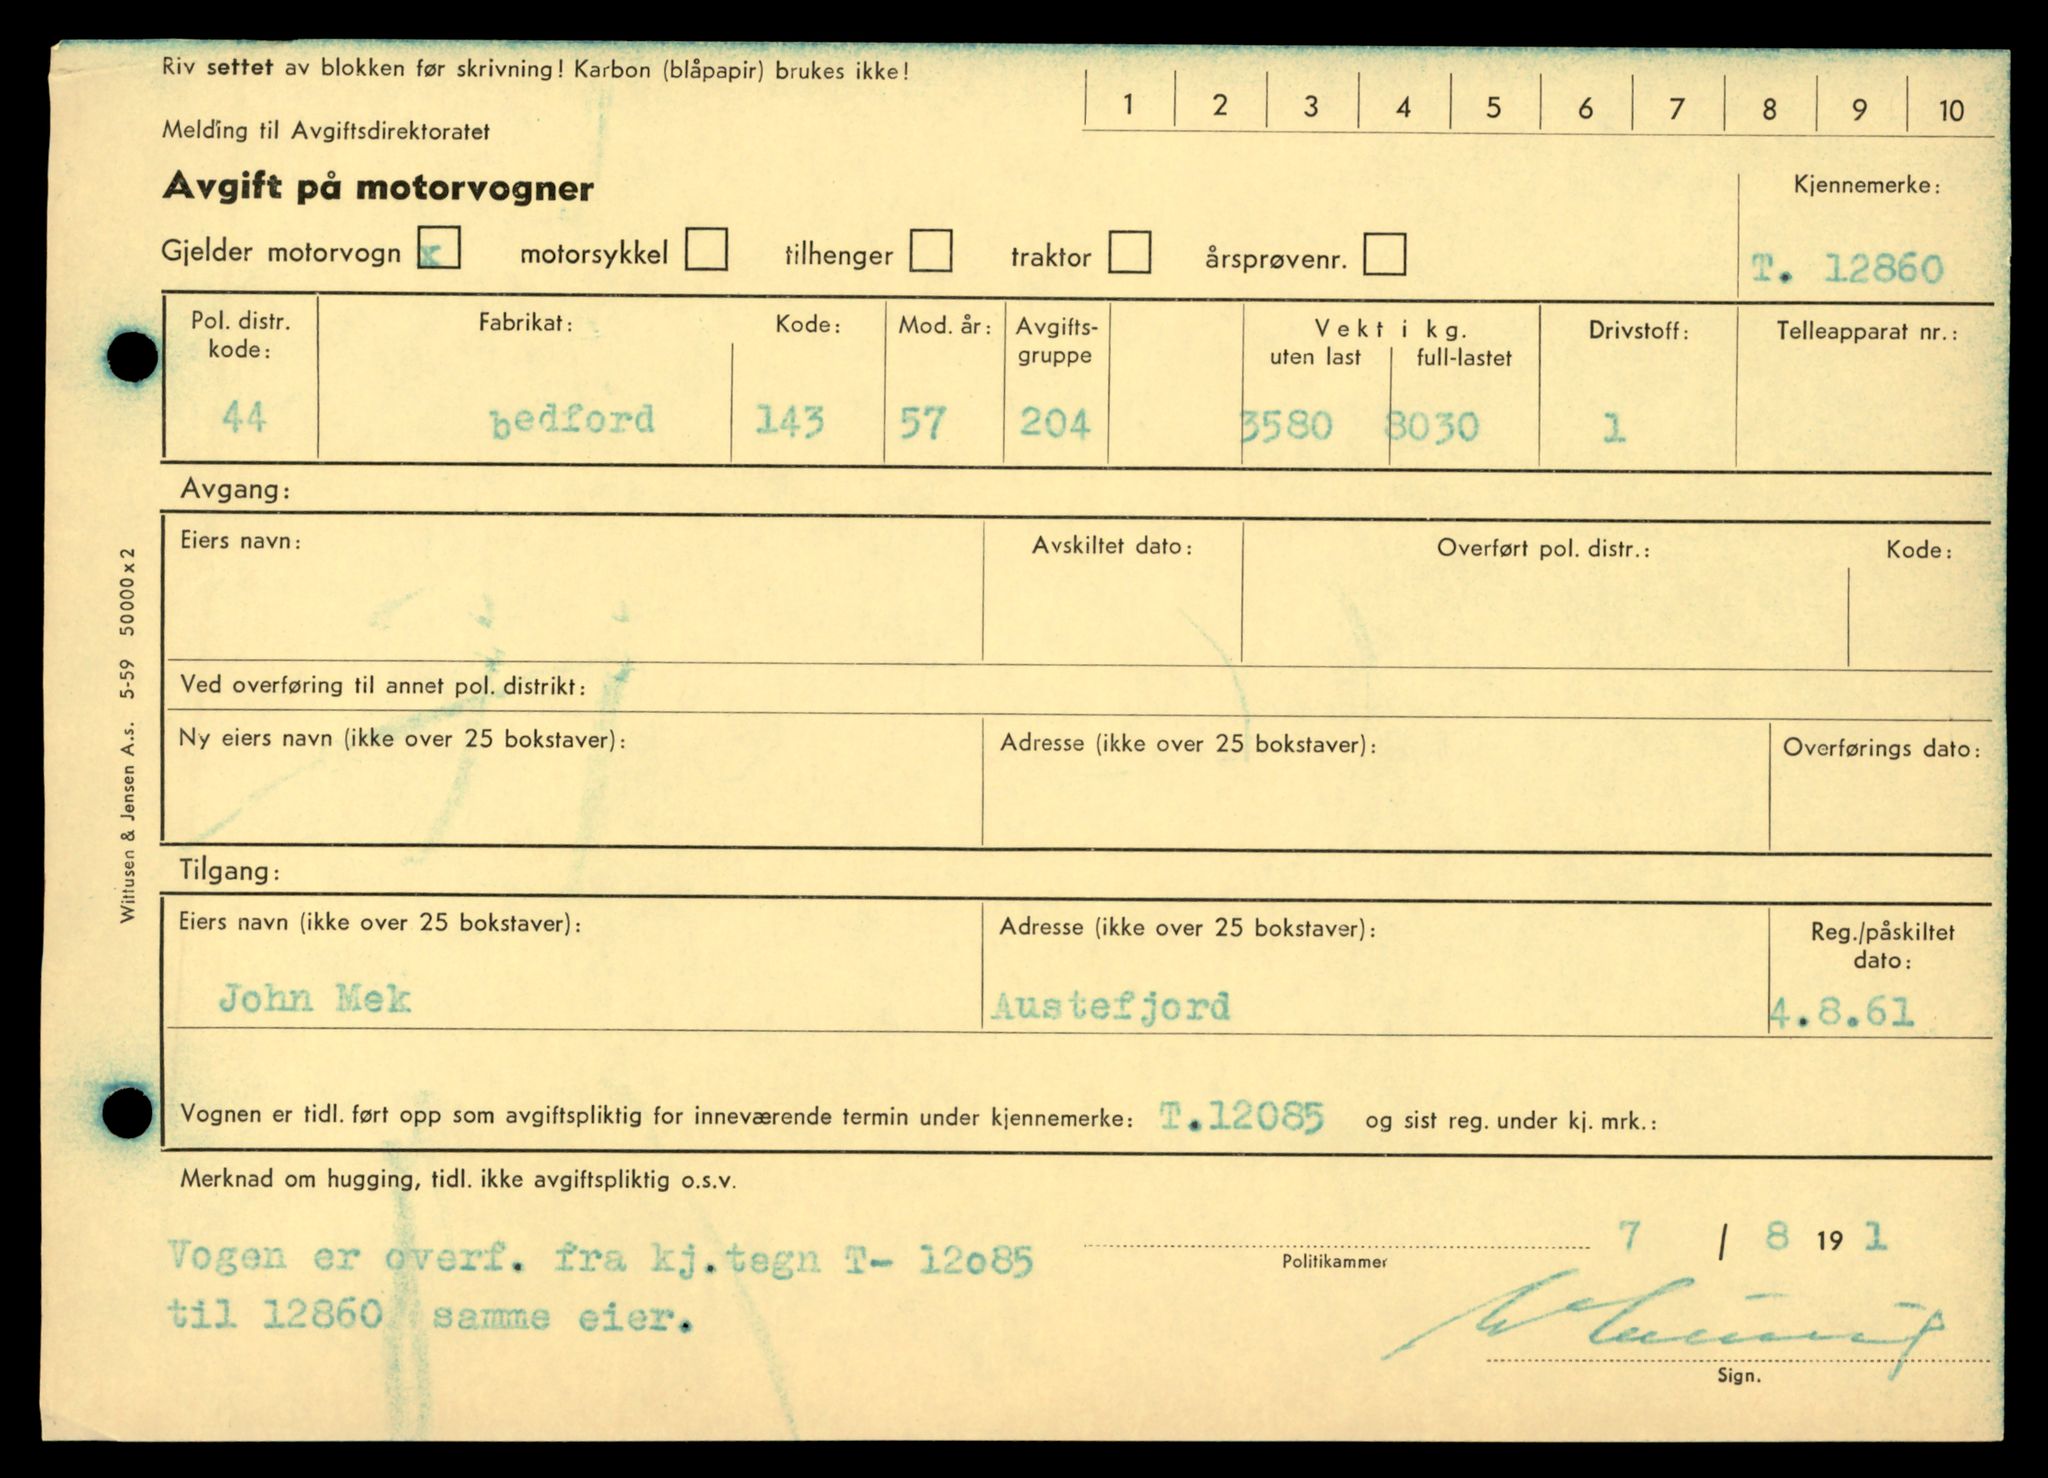 Riv settet av blokken før skrivning! Karbon (blåpapir) brukes ikke!
1 2 3 4 5 6 7 8 9 10
Melding til Avgiftsdirektoratet
Avgift på motorvogner
Kjennemerke:
Gjelder motorvogn x motorsykkel tilhenger traktor årsprøvenr.
T. 12860
Pol. distr. kode: Fabrikat: Kode: Mod. år: Avgifts-gruppe Vekt i kg. uten last full-lastet Drivstoff: Telleapparat nr.:
44 bedford 143 57 204 3580 8030 1
Avgang:
Eiers navn: Avskiltet dato: Overført pol. distr.: Kode:
Ved overføring til annet pol. distrikt:
Ny eiers navn (ikke over 25 bokstaver): Adresse (ikke over 25 bokstaver): Overførings dato:
Tilgang:
Eiers navn (ikke over 25 bokstaver): Adresse (ikke over 25 bokstaver): Reg./påskiltet dato:
John Mek Austefjord 4.8.61
Vognen er tidl. ført opp som avgiftspliktig for inneværende termin under kjennemerke: T.12085 og sist reg. under kj. mrk.:
Merknad om hugging, tidl. ikke avgiftspliktig o.s.v.
7 / 8 19 1
Politikammer
Vogen er overf. fra kj.tegn T- 12o85
til 12860 samme eier.
Sign.
Wittusen & Jensen A.s. 5-59 50000 x 2